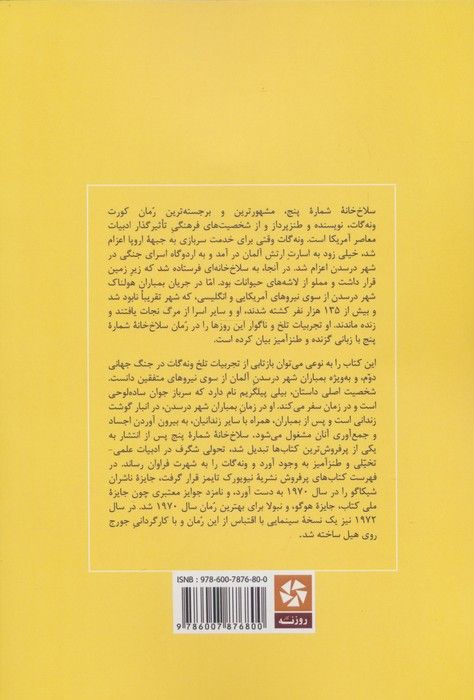 سلاخ‌خانهٔ شمارهٔ پنج، مشهورترین و برجسته‌ترین رُمان کورت
ونه‌گات، نویسنده و طنزپرداز و از شخصیت‌های فرهنگی تأثیرگذار ادبیات
معاصر آمریکا است. ونه‌گات وقتی برای خدمت سربازی به جبههٔ اروپا اعزام
شد، خیلی زود به اسارت ارتش آلمان در آمد و به اردوگاه اسرای جنگی در
شهر درسدن اعزام شد. در آنجا، به سلاخ‌خانه‌ای فرستاده شد که زیر زمین
قرار داشت و مملو از لاشه‌های حیوانات بود. امّا در جریان بمباران هولناک
شهر درسدن از سوی نیروهای آمریکایی و انگلیسی، که شهر تقریباً نابود شد
و بیش از ۱۳۵ هزار نفر کشته شدند، او و سایر اسرا از مرگ نجات یافتند و
زنده ماندند. او تجربیات تلخ و ناگوار این روزها را در رُمان سلاخ‌خانهٔ شمارهٔ
پنج با زبانی گزنده و طنزآمیز بیان کرده است.
این کتاب را به نوعی می‌توان بازتابی از تجربیات تلخ ونه‌گات در جنگ جهانی
دوّم، و به‌ویژه بمباران شهر درسدنِ آلمان از سوی نیروهای متفقین دانست.
شخصیت اصلی داستان، بیلی پیلگریم نام دارد که سرباز جوان ساده‌لوحی
است و در زمان سفر می‌کند. او در زمانِ بمباران شهر درسدن، در انبار گوشت
زندانی است و پس از بمباران، همراه با سایر زندانیان، به بیرون آوردن اجساد
و جمع‌آوری آنان مشغول می‌شود. سلاخ‌خانهٔ شمارهٔ پنج پس از انتشار به
یکی از پرفروش‌ترین کتاب‌ها تبدیل شد، تحولی شگرف در ادبیات علمی-
تخیّلی و طنزآمیز به وجود آورد و ونه‌گات را به شهرت فراوان رساند. در
فهرست کتاب‌های پرفروش نشریهٔ نیویورک تایمز قرار گرفت، جایزهٔ ناشران
شیکاگو را در سال ۱۹۷۰ به دست آورد، و نامزد جوایز معتبری چون جایزهٔ
ملی کتاب، جایزهٔ هوگو، و نبولا برای بهترین رُمان سال ۱۹۷۰ شد. در سال
۱۹۷۲ نیز یک نسخهٔ سینمایی با اقتباس از این رُمان و با کارگردانیِ جورج
روی هیل ساخته شد.
ISNB : 978-600-7876-80-0
9 786007 876800
روزنه